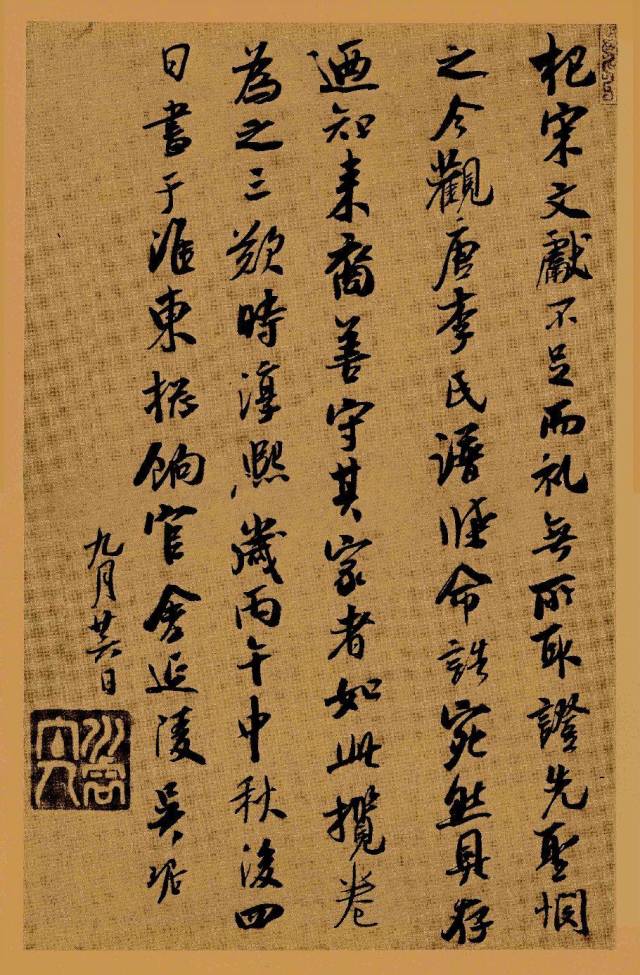 杞宋文獻不足而礼無所取證先聖惘
之今觀唐李氏譜牒命誥宛然具存
迺知来裔善守其家者如此攬卷
為之三歎時淳熙歲丙午中秋後四
日書于淮東揔餉官舍延陵吳琚
九月廿六日